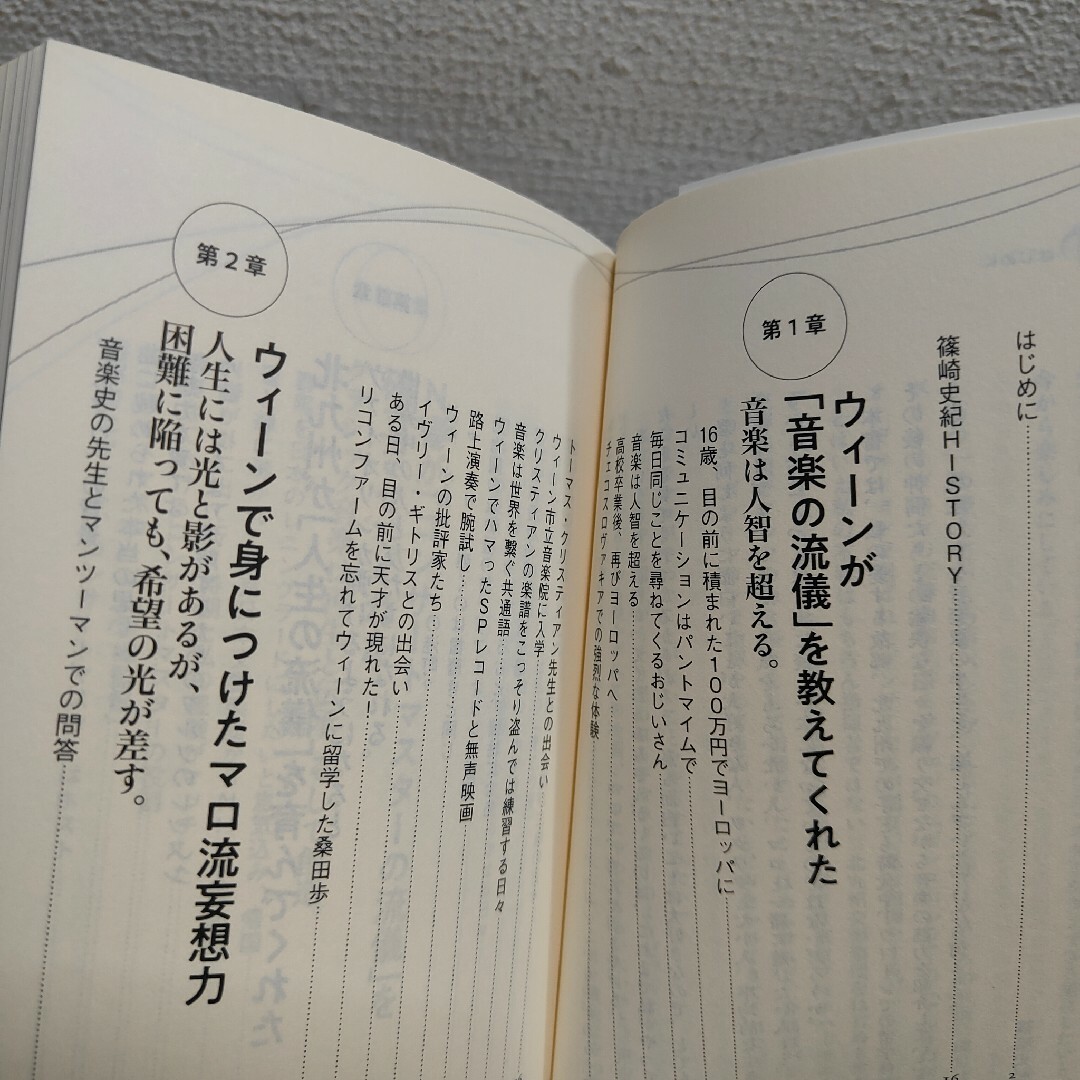 はじめに
2
篠崎史紀HISTORY
16
第1章
ウィーンが
「音楽の流儀」を教えてくれた
音楽は人智を超える。
16歳、目の前に積まれた100万円でヨーロッパに
コミュニケーションはパントマイムで
毎日同じことを尋ねてくるおじいさん
音楽は人智を超える
高校卒業後、再びヨーロッパへ
チェコスロヴァキアでの強烈な体験
トーマス・クリスティアン先生との出会い
ウィーン市立音楽院に入学
クリスティアンの楽譜をこっそり盗んでは練習する日々
音楽は世界を繋ぐ共通語
ウィーンでハマったSPレコードと無声映画
路上演奏で腕試し
ウィーンの批評家たち
イヴリー・ギトリスとの出会い
ある日、目の前に天才が現れた!
リコンファームを忘れてウィーンに留学した桑田歩
第2章
ウィーンで身につけたマロ流妄想力
人生には光と影があるが、
困難に陥っても、希望の光が差す。
音楽史の先生とマンツーマンでの問答